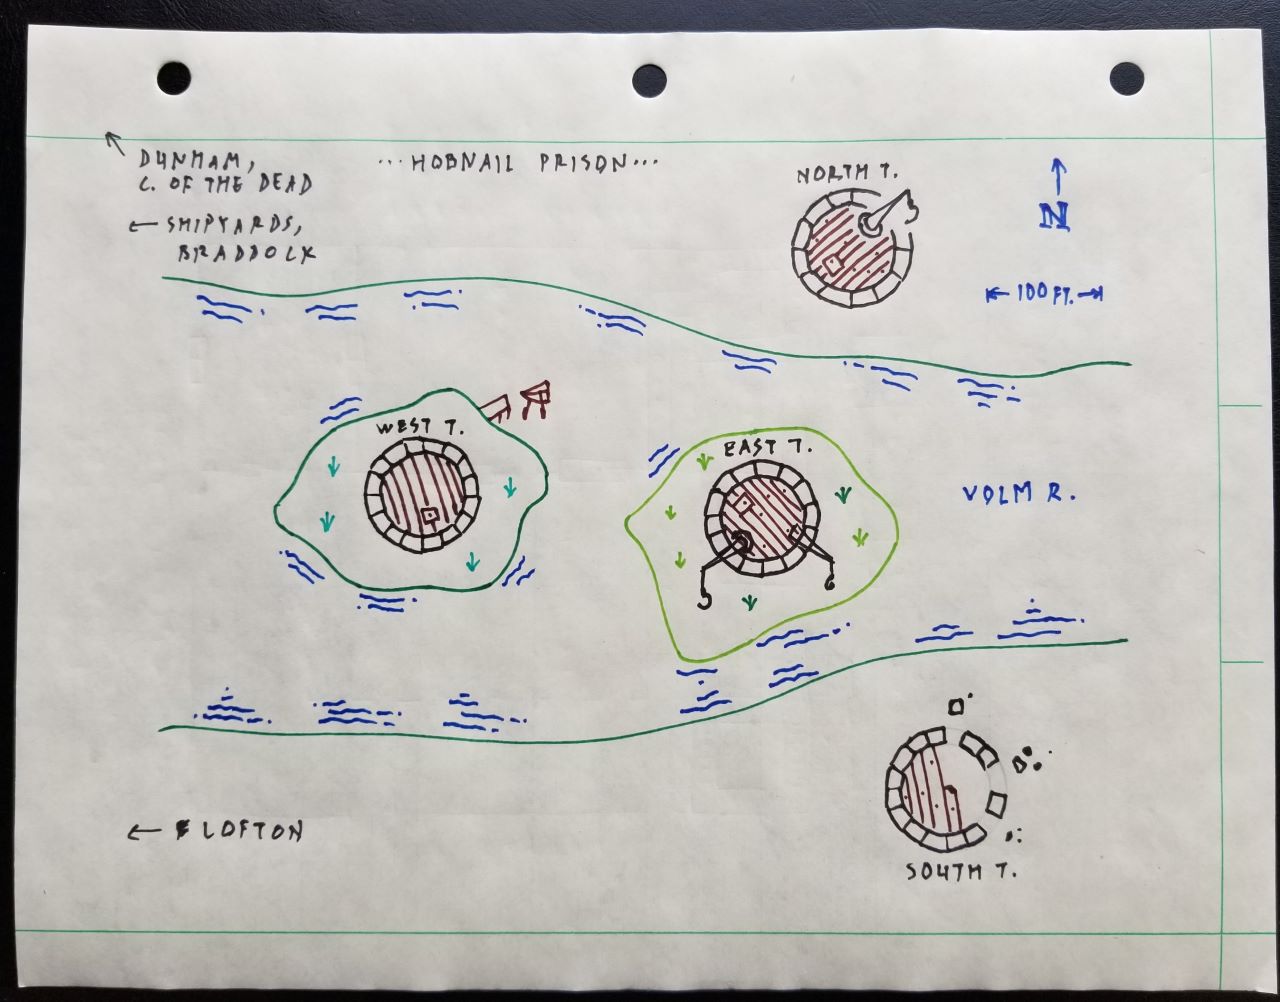 DUNHAM,
C. OF THE DEAD
← SHIPYARDS,
BRADDOCK
...HOBNAIL PRISON...
NORTH T.
N
←100 FT.→
WEST T.
EAST T.
VOLM R.
← LOFTON
SOUTH T.